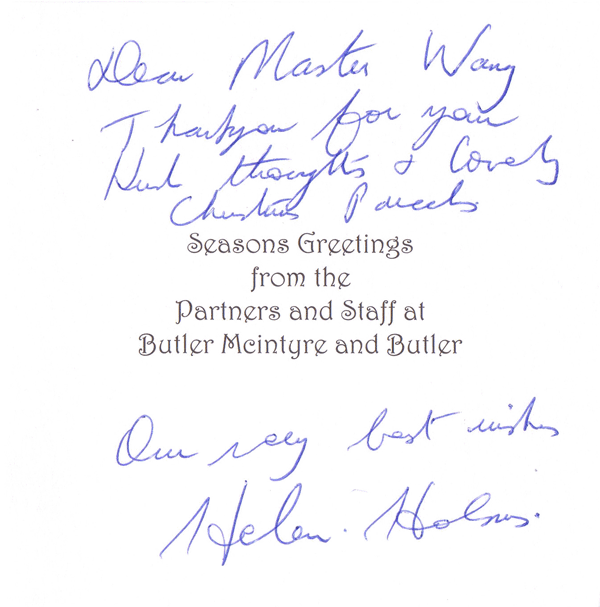 Dear Master Wang
Thankyou for your
kind thoughts & lovely
Christmas Parcels
Seasons Greetings
from the
Partners and Staff at
Butler Mcintyre and Butler
Our very best wishes
Helen.